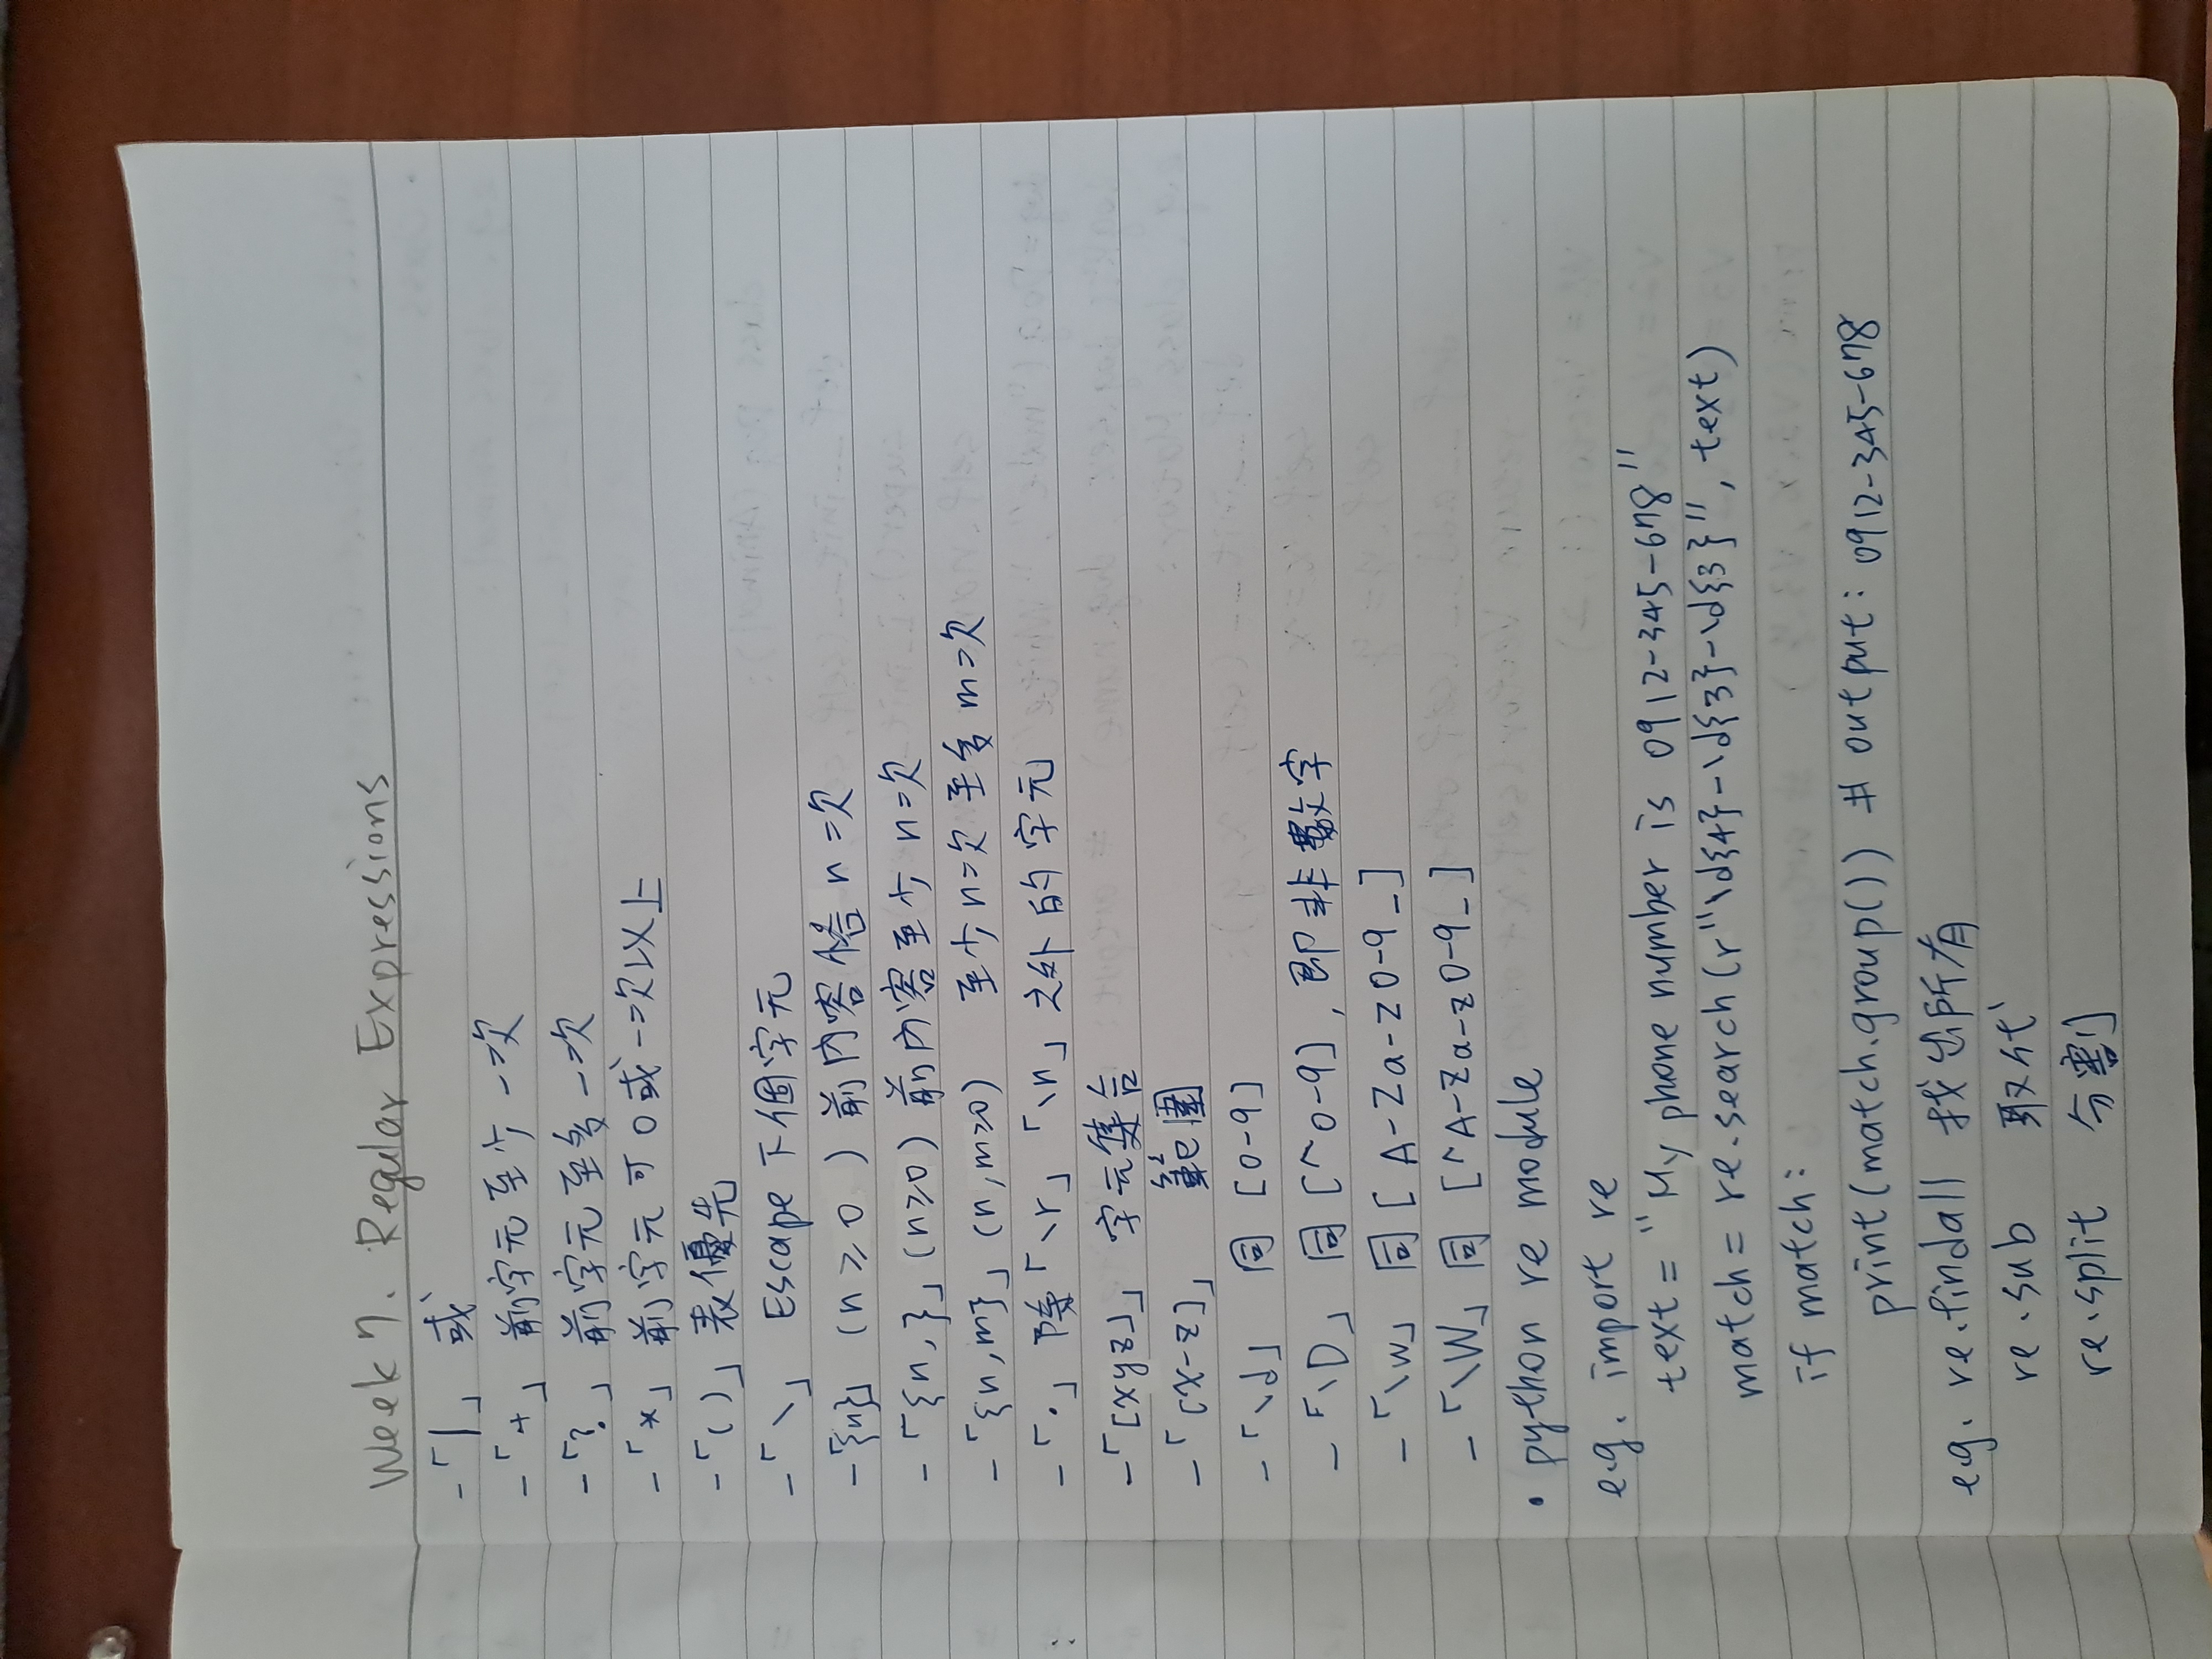 Week 7. Regular Expressions
-「|」 或
-「+」 前字元至少一次
-「?」 前字元至多一次
-「*」 前字元可0或一次以上
-「()」表優先
-「\」 Escape 下個字元
-「{n}」 (n≥0) 前內容恰n次
-「{n,}」(n≥0) 前內容至少n次
-「{n,m}」(n,m≥0) 至少n次至多m次
-「.」除「\r」「\n」之外的字元
-「[xyz]」 字元集合
-「[x-z]」 範圍
-「\d」 同 [0-9]
-「\D」 同 [^0-9], 即非數字
-「\w」 同 [A-Za-z0-9_]
-「\W」 同 [^A-Za-z0-9_]
• python re module
e.g. import re
text = "My phone number is 0912-345-678"
match = re.search(r"\d{4}-\d{3}-\d{3}", text)
if match:
print(match.group()) # output: 0912-345-678
e.g. re.findall 找出所有
re.sub 取代
re.split 分割